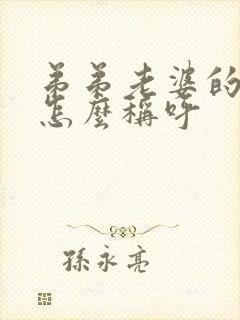 弟弟老婆的
怎麼稱呼
孫永亮